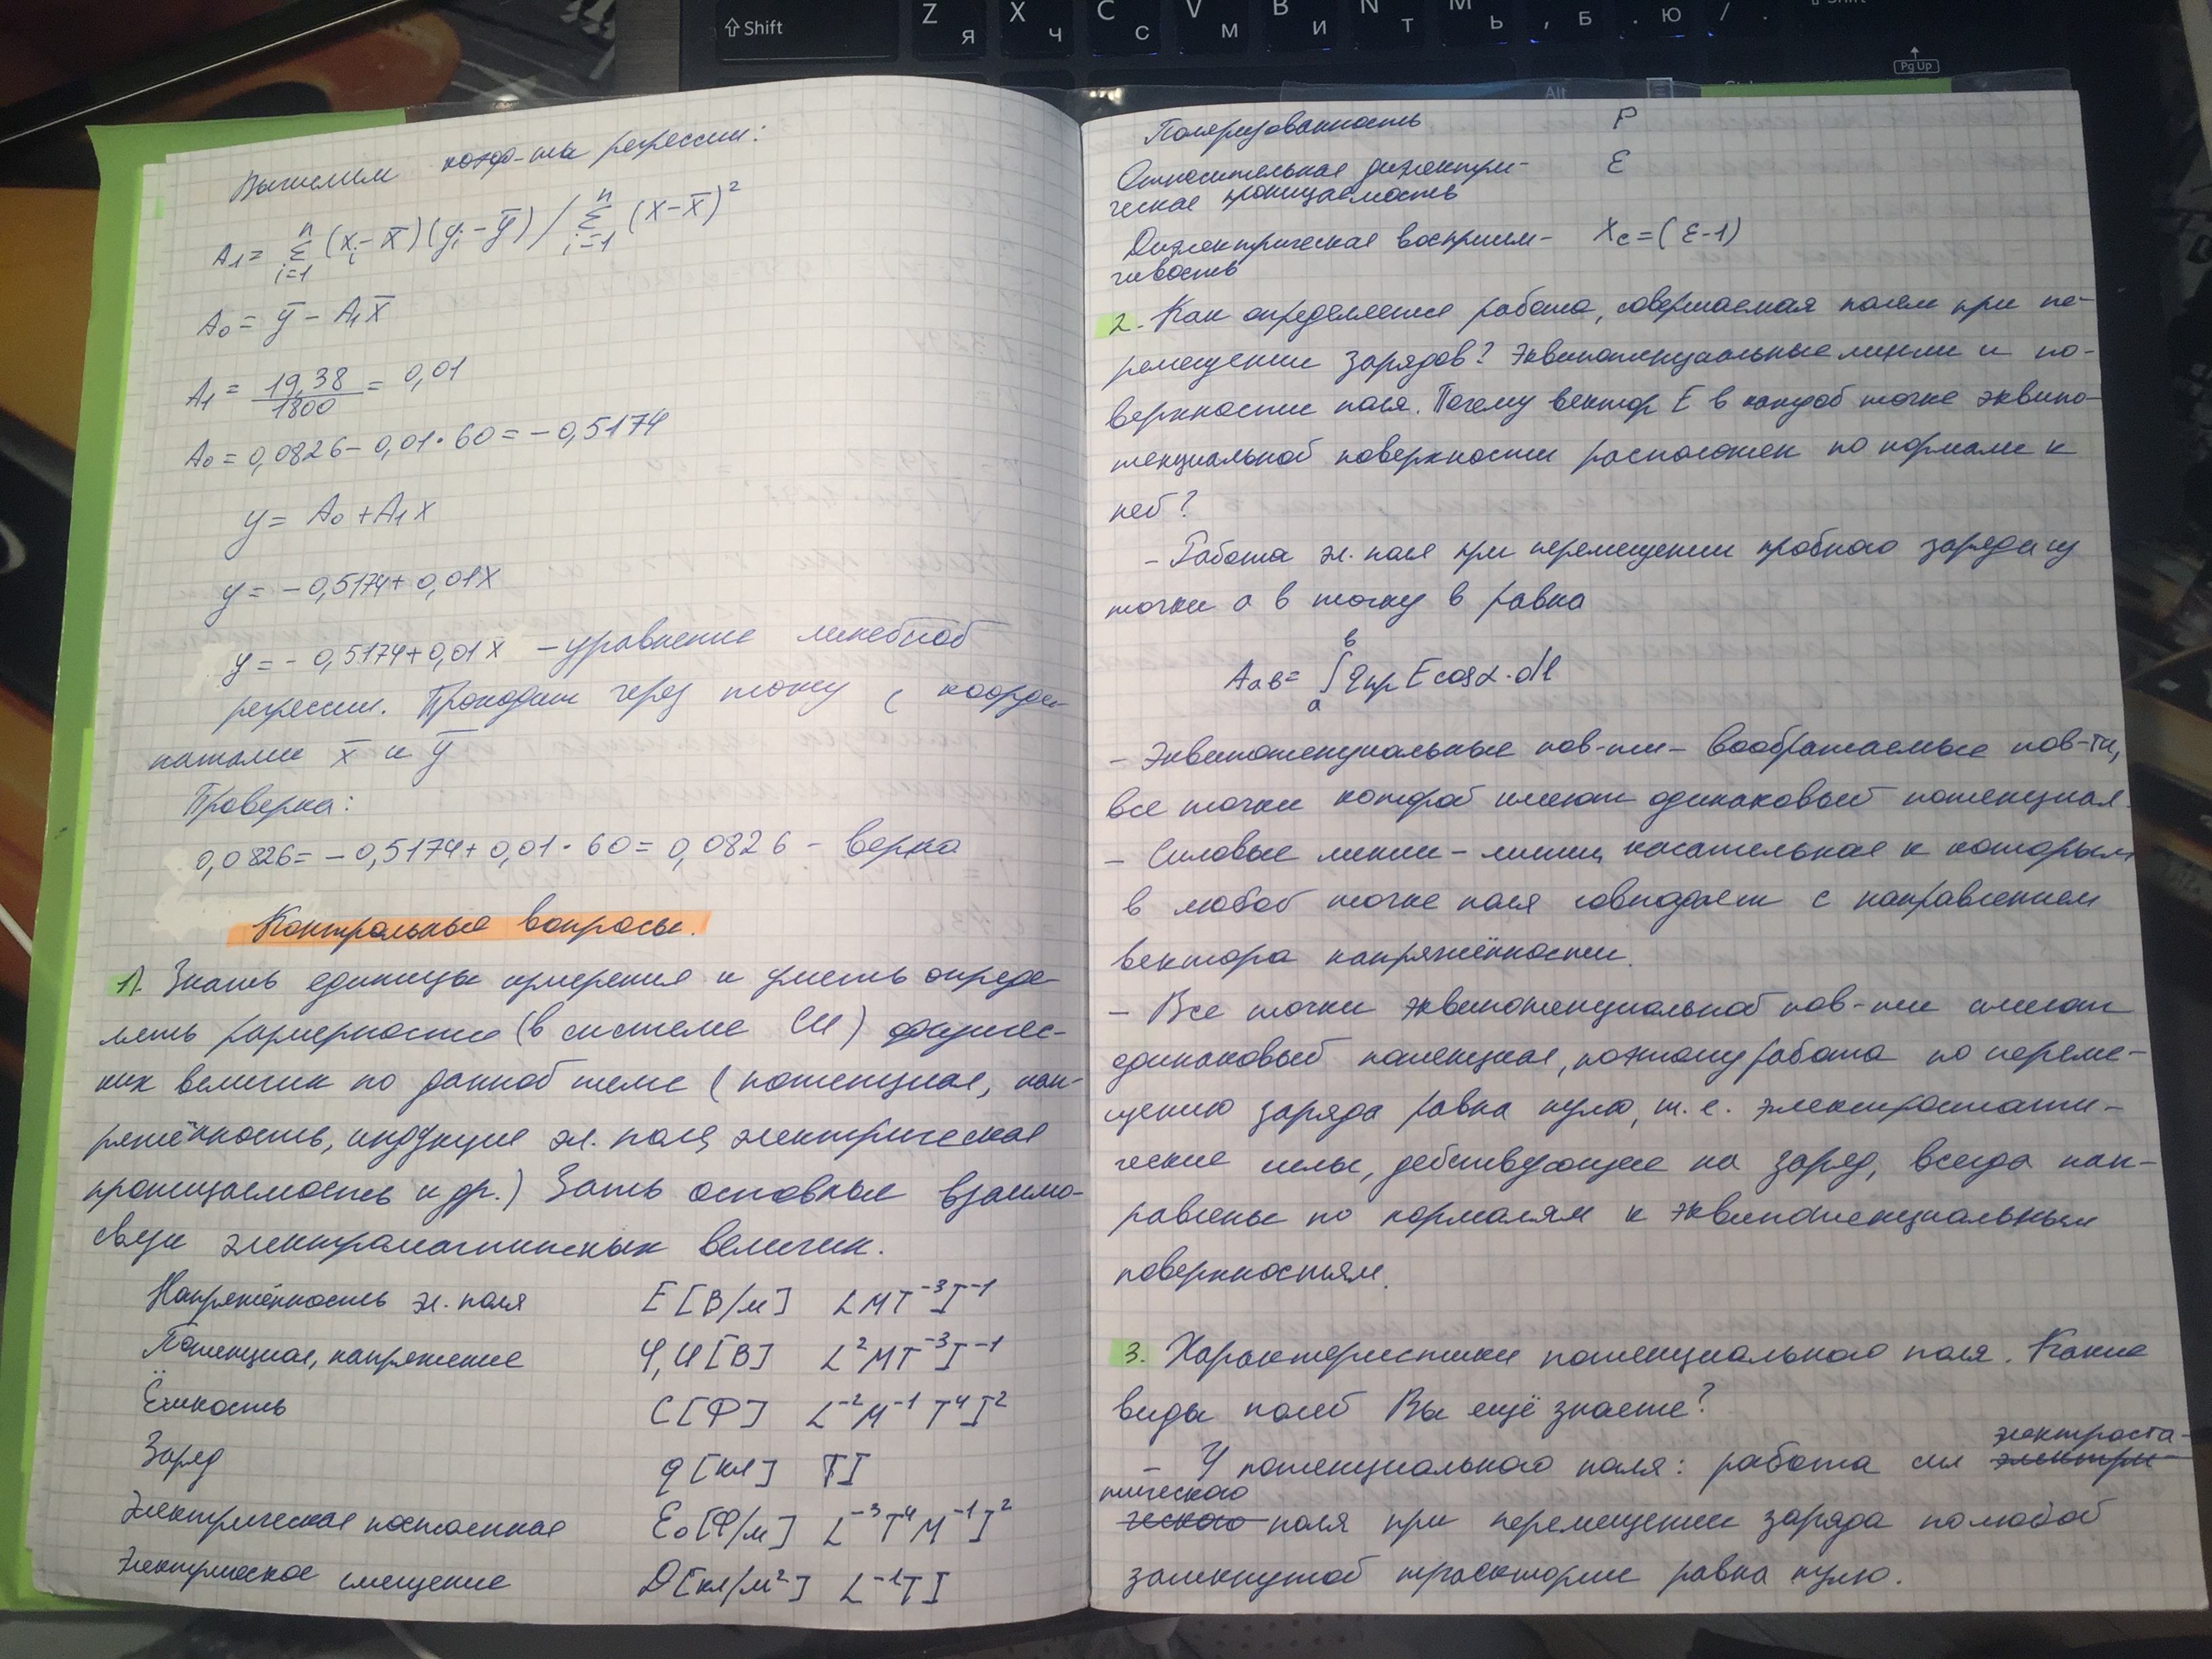 Shift
Z Я
X Ч
C С
V М
B И
N Т
M Ь
, Б
. Ю
/ .
Shift
Pg Up
Alt
Вычислим коэф-ты регрессии:
A₁ = Σ (xᵢ - x̄)(yᵢ - ȳ) / Σ (x - x̄)²
n i=1 n i=1
A₀ = ȳ - A₁x̄
A₁ = 19,38/1800 = 0,01
A₀ = 0,0826 - 0,01·60 = -0,5174
y = A₀ + A₁x
y = -0,5174 + 0,01x
y = -0,5174 + 0,01x - уравнение линейной
регрессии. Проходит через точку с коорди-
натами x̄ и ȳ
Проверка:
0,0826 = -0,5174 + 0,01·60 = 0,0826 - верно
Контрольные вопросы.
1). Знать единицы измерения и уметь опреде-
лять размерности (в системе СИ) физичес-
ких величин по данной теме (потенциал, нап-
ряжённость, индукция эл. поля, электрическая
проницаемость и др.) Зать основные взаимо-
связи электромагнитных величин.
Напряжённость эл. поля E [В/м] LMT⁻³I⁻¹
Потенциал, напряжение φ, U [В] L²MT⁻³I⁻¹
Ёмкость C [Ф] L⁻²M⁻¹T⁴I²
Заряд q [кл] TI
Электрическая постоянная ε₀ [Ф/м] L⁻³T⁴M⁻¹I²
Электрическое смещение D [кл/м²] L⁻¹TI
Поляризованность P
Относительная диэлектри- ε
ческая проницаемость
Диэлектрическая восприим- Xc = (ε-1)
чивость
2. Как определяется работа, совершаемая полем при пе-
ремещении зарядов? Эквипотенциальные линии и по-
верхности поля. Почему вектор E в каждой точке эквипо-
тенциальной поверхности расположен по нормали к
ней?
- Работа эл. поля при перемещении пробного заряда из
точки a в точку в равна
Aaв = ∫ qпр E cosα · dl
в a
- Эквипотенциальные пов-ти - воображаемые пов-ти,
все точки которой имеют одинаковый потенциал.
- Силовые линии - линии, касательная к которым
в любой точке поля совпадает с направлением
вектора напряжённости.
- Все точки эквипотенциальной пов-ти имеют
одинаковый потенциал, поэтому работа по переме-
щению заряда равна нулю, т.е. электростати-
ческие силы, действующие на заряд, всегда нап-
равлены по нормалям к эквипотенциальным
поверхностям.
3. Характеристики потенциального поля. Какие
виды полей Вы ещё знаете?
электроста-
- У потенциального поля: работа сил электри-
тического
ческого поля при перемещении заряда по любой
замкнутой траектории равна нулю.